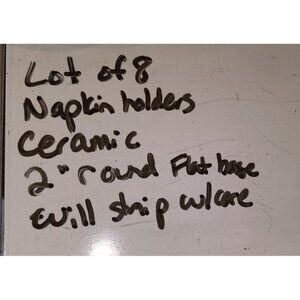 Lot of 8
Napkin holders
Ceramic
2" round Flat base
will ship w/care